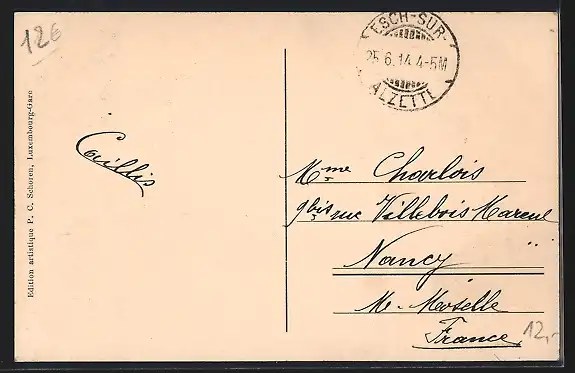 126
ESCH-SUR-
25.6.14.4-5M
ALZETTE
Edition artistique P. C. Schoren, Luxembourg-Gare
Caillis
Mme Charlois
9bis rue Villebois Mareuil
Nancy
Mte-Moselle
France
12,-